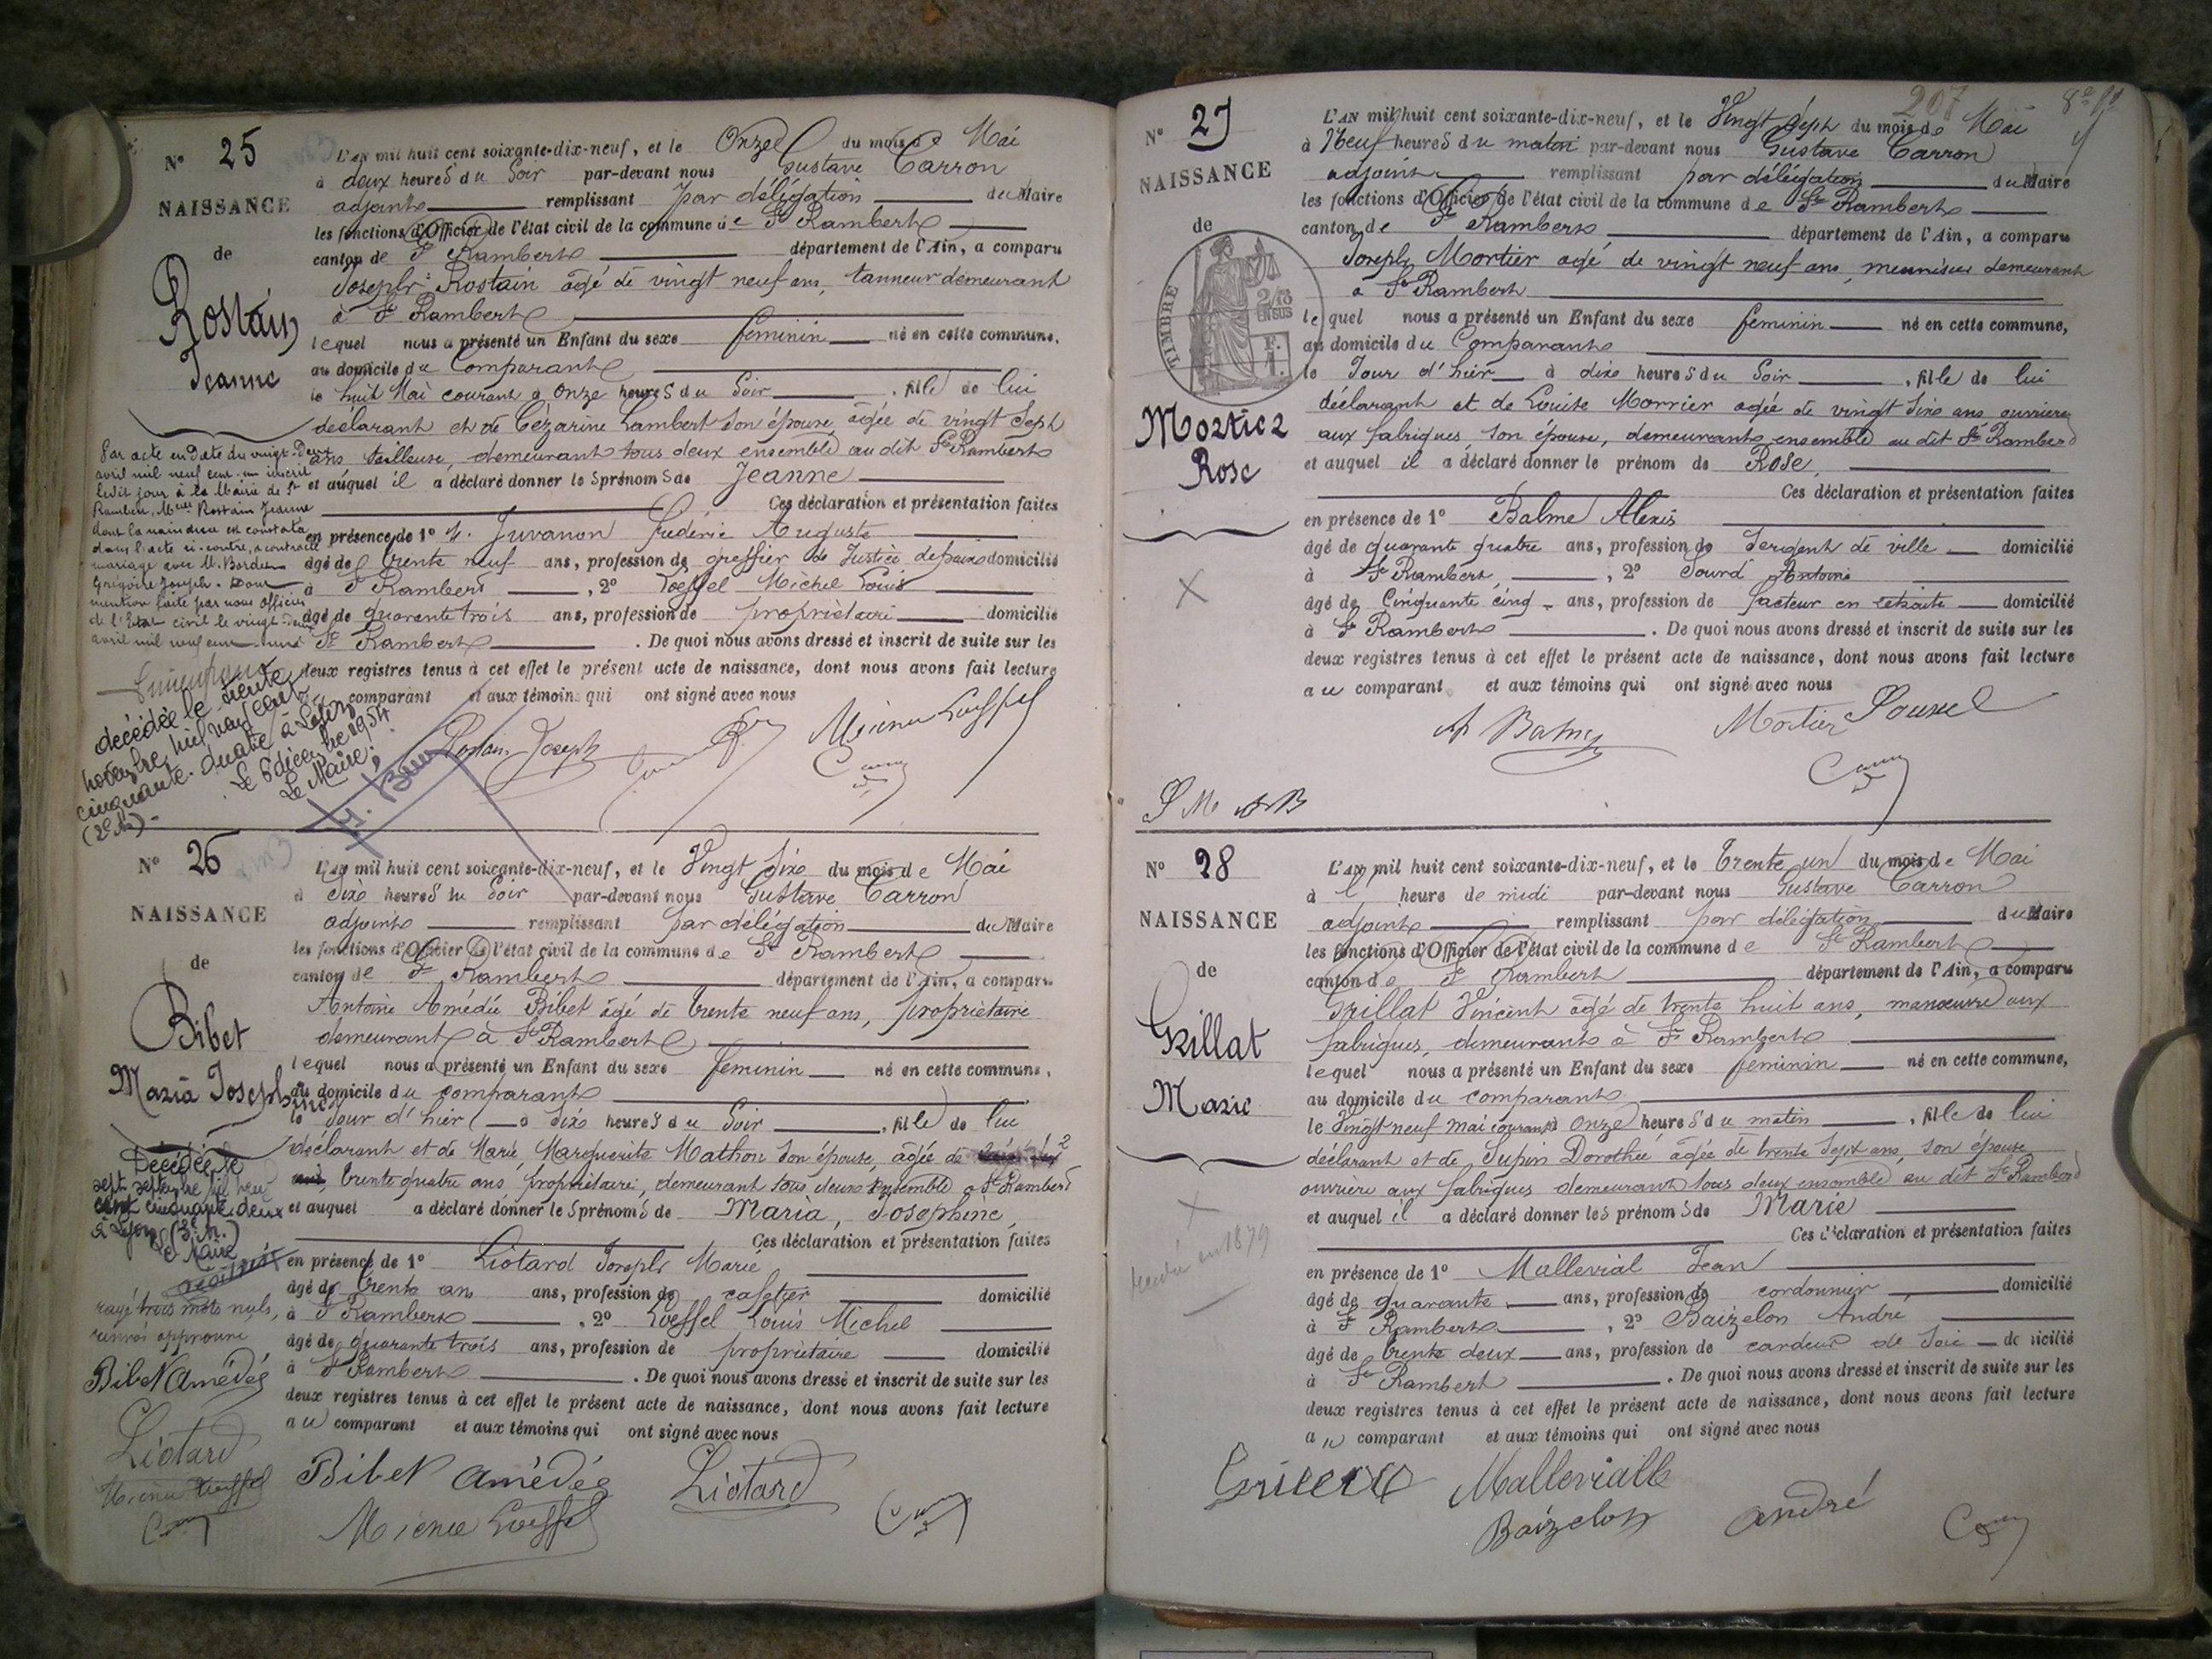 N° 25
NAISSANCE
de
Rostain
Jeanne
L'AN mil huit cent soixante-dix-neuf, et le Onze du mois de Mai
à deux heures du Soir par-devant nous Gustave Carron
adjoint remplissant par délégation du Maire
les fonctions d'Officier de l'état civil de la commune de St Rambert
canton de St Rambert département de l'Ain, a comparu
Joseph Rostain âgé de vingt neuf ans, tanneur demeurant
à St Rambert
lequel nous a présenté un Enfant du sexe féminin né en cette commune,
au domicile du Comparant
le huit Mai courant à Onze heures du Soir, fille de lui
déclarant et de Cézarine Lambert son épouse, âgée de vingt Sept
ans tailleuse, demeurant tous deux ensemble au dit St Rambert
et auquel il a déclaré donner les prénoms de Jeanne
Ces déclaration et présentation faites
en présence de 1° Juvanon Frédéric Auguste
âgé de trente neuf ans, profession de greffier de Justice de paix domicilié
à St Rambert, 2° Loeffel Michel Louis
âgé de quarante trois ans, profession de propriétaire domicilié
à St Rambert. De quoi nous avons dressé et inscrit de suite sur les
deux registres tenus à cet effet le présent acte de naissance, dont nous avons fait lecture
au comparant et aux témoins qui ont signé avec nous
Par acte en Date du vingt-Deux
avril mil neuf cent un inscrit
ledit jour à la Mairie de St
Rambert, Melle Rostain Jeanne
dont la naissance est constatée
dans l'acte ci-contre, a contracté
mariage avec M. Bordes
Grégoire Joseph. Dont
mention faite par nous Officier
de l'Etat civil le vingt-deux
avril mil neuf cent un
décédée le trente
novembre mil neuf cent
cinquante-quatre à Lyon
(2e A.)
Le 6 décembre 1954
Le Maire:
Rostain Joseph
Loeffel
N° 26
NAISSANCE
de
Bibet
Maria Josephine
L'AN mil huit cent soixante-dix-neuf, et le Vingt Six du mois de Mai
à Six heures du Soir par-devant nous Gustave Carron
adjoint remplissant par délégation du Maire
les fonctions d'Officier de l'état civil de la commune de St Rambert
canton de St Rambert département de l'Ain, a comparu
Antoine Amédée Bibet âgé de trente neuf ans, propriétaire
demeurant à St Rambert
lequel nous a présenté un Enfant du sexe féminin né en cette commune,
au domicile du comparant
le Jour d'hier à Six heures du Soir, fille de lui
déclarant et de Marie Marguerite Mathon son épouse, âgée de
trente quatre ans propriétaire, demeurant tous deux ensemble à St Rambert
et auquel a déclaré donner les prénoms de Maria, Joséphine,
Ces déclaration et présentation faites
en présence de 1° Liotard Joseph Marie
âgé de trente ans ans, profession de cafetier domicilié
à St Rambert, 2° Loeffel Louis Michel
âgé de quarante trois ans, profession de propriétaire domicilié
à St Rambert. De quoi nous avons dressé et inscrit de suite sur les
deux registres tenus à cet effet le présent acte de naissance, dont nous avons fait lecture
au comparant et aux témoins qui ont signé avec nous
Décédée le
sept septembre mil neuf
cent cinquante deux
à Lyon (3e A.)
Le Maire
rayé trois mots nuls,
renvoi approuvé
Bibet Amédée
Liotard
Bibet Amédée Liotard
Loeffel
207
8e ft
N° 27
NAISSANCE
de
TIMBRE
2/10
EN SUS
F.
1.
Mortier
Rose
L'AN mil huit cent soixante-dix-neuf, et le Vingt Sept du mois de Mai
à Neuf heures du matin par-devant nous Gustave Carron
adjoint remplissant par délégation du Maire
les fonctions d'Officier de l'état civil de la commune de St Rambert
canton de St Rambert département de l'Ain, a comparu
Joseph Mortier âgé de vingt neuf ans, menuisier demeurant
à St Rambert
lequel nous a présenté un Enfant du sexe féminin né en cette commune,
au domicile du Comparant
le Jour d'hier à dix heures du Soir, fille de lui
déclarant et de Louise Morrier âgée de vingt six ans ouvrière
aux fabriques son épouse, demeurants ensemble au dit St Rambert
et auquel il a déclaré donner le prénom de Rose,
Ces déclaration et présentation faites
en présence de 1° Balme Alexis
âgé de quarante quatre ans, profession de Sergent de ville domicilié
à St Rambert, 2° Sourd Antoine
âgé de Cinquante cinq ans, profession de facteur en retraite domicilié
à St Rambert. De quoi nous avons dressé et inscrit de suite sur les
deux registres tenus à cet effet le présent acte de naissance, dont nous avons fait lecture
au comparant et aux témoins qui ont signé avec nous
Mortier
N° 28
NAISSANCE
de
Grillat
Marie
L'AN mil huit cent soixante-dix-neuf, et le Trente un du mois de Mai
à l' heure de midi par-devant nous Gustave Carron
adjoint remplissant par délégation du Maire
les fonctions d'Officier de l'état civil de la commune de St Rambert
canton de St Rambert département de l'Ain, a comparu
Grillat Vincent âgé de trente huit ans, manœuvre aux
fabriques, demeurant à St Rambert
lequel nous a présenté un Enfant du sexe féminin né en cette commune,
au domicile du comparant
le Vingt neuf mai courant à onze heures du matin, fille de lui
déclarant et de Jupin Dorothée âgée de trente Sept ans, son épouse
ouvrière aux fabriques demeurant tous deux ensemble au dit St Rambert
et auquel il a déclaré donner les prénoms de Marie
Ces déclaration et présentation faites
en présence de 1° Mallevial Jean
âgé de quarante ans, profession de cordonnier domicilié
à St Rambert, 2° Baizelon André
âgé de trente deux ans, profession de cardeur de Soie domicilié
à St Rambert. De quoi nous avons dressé et inscrit de suite sur les
deux registres tenus à cet effet le présent acte de naissance, dont nous avons fait lecture
au comparant et aux témoins qui ont signé avec nous
en 1879
Malleviall
Baizelon André